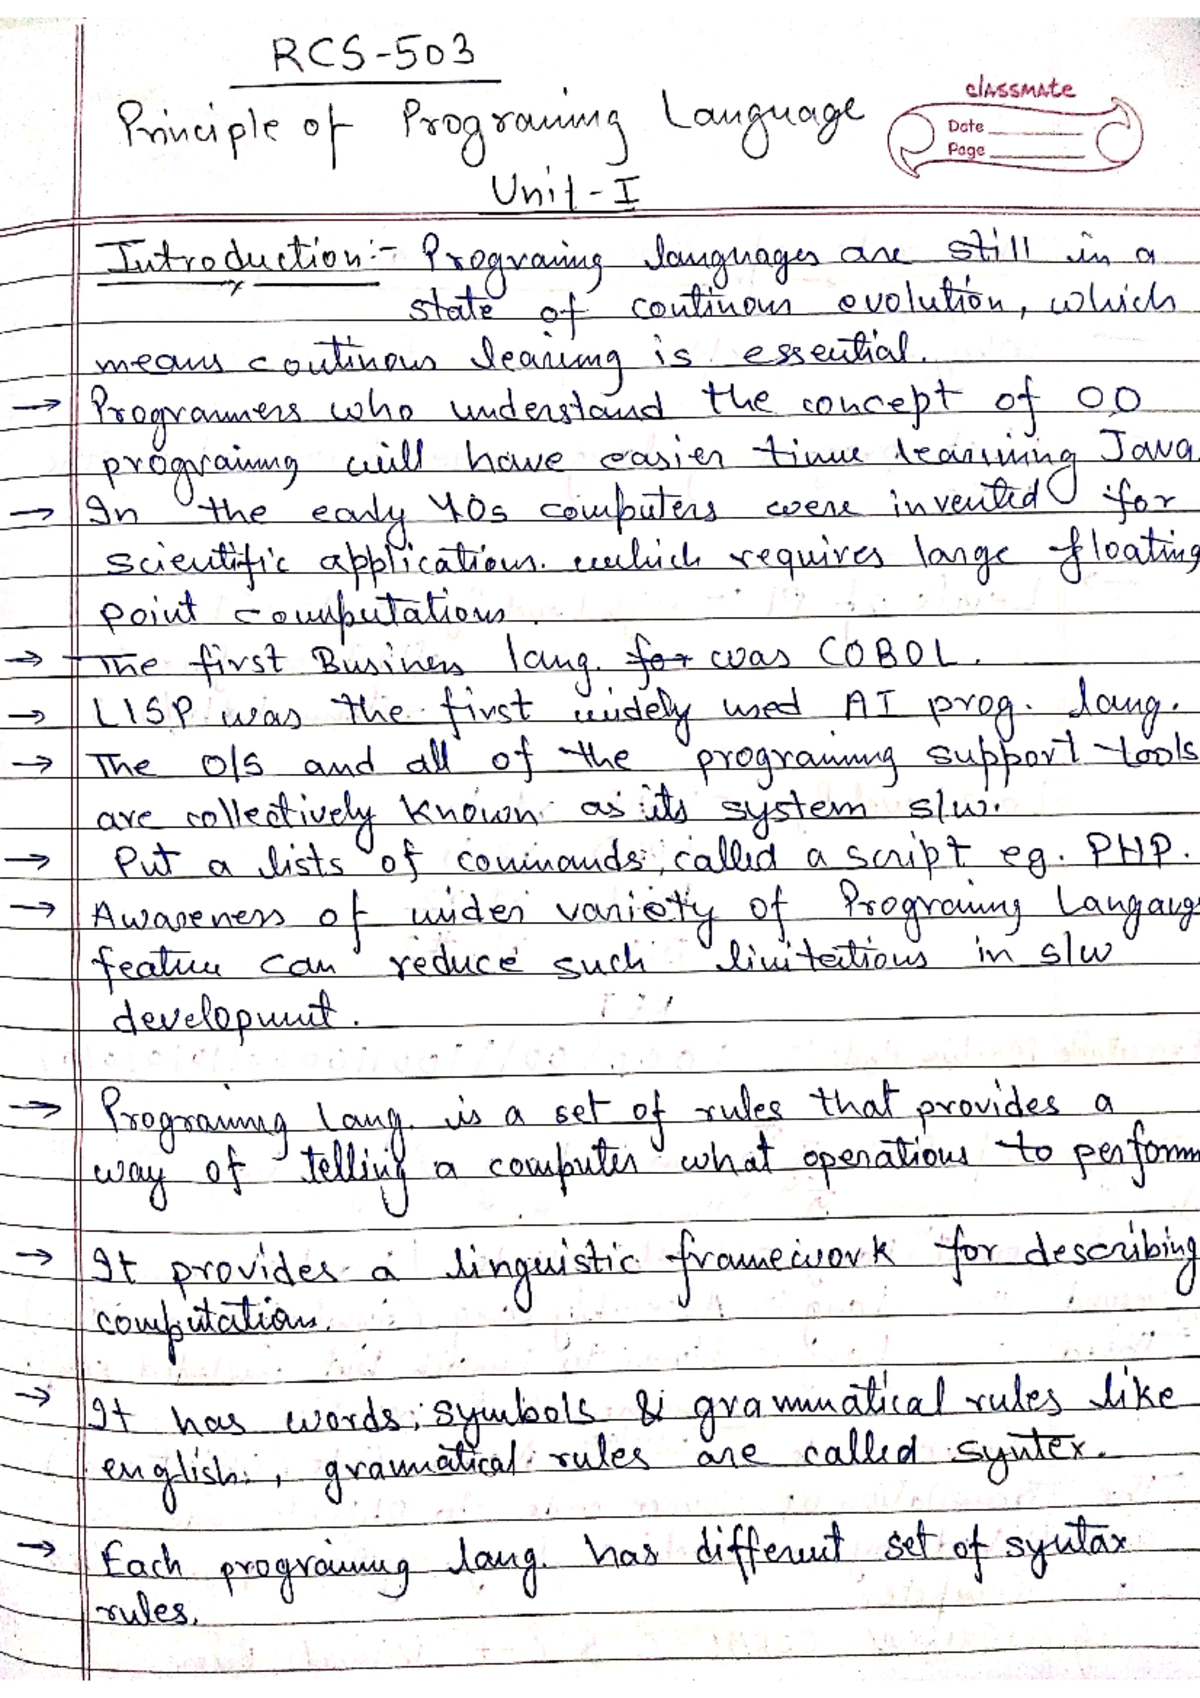 RCS-503
Principle of Programing Language
classmate
Date
Page
Unit-I
Introduction:- Programing languages are still in a
state of continous evolution, which
means continous learning is essential.
→ Programmers who understand the concept of OO
programing will have easier time learning Java
→ In the early 40s computers were invented for
scientific applications. which requires large floating
point computations.
→ The first Business lang. for was COBOL.
→ LISP was the first widely used AI prog. lang.
→ The O/S and all of the programing support tools
are collectively known as its system s/w.
→ Put a lists of commands, called a script eg. PHP.
→ Awareness of wider variety of Programing Langaug
feature can reduce such limitations in s/w
development.
→ Programing lang. is a set of rules that provides a
way of telling a computer what operations to perform
→ It provides a linguistic framework for describing
computation.
→ It has words, symbols & grammatical rules like
english, grammatical rules are called syntex.
→ Each programing lang. has different set of syntax
rules.